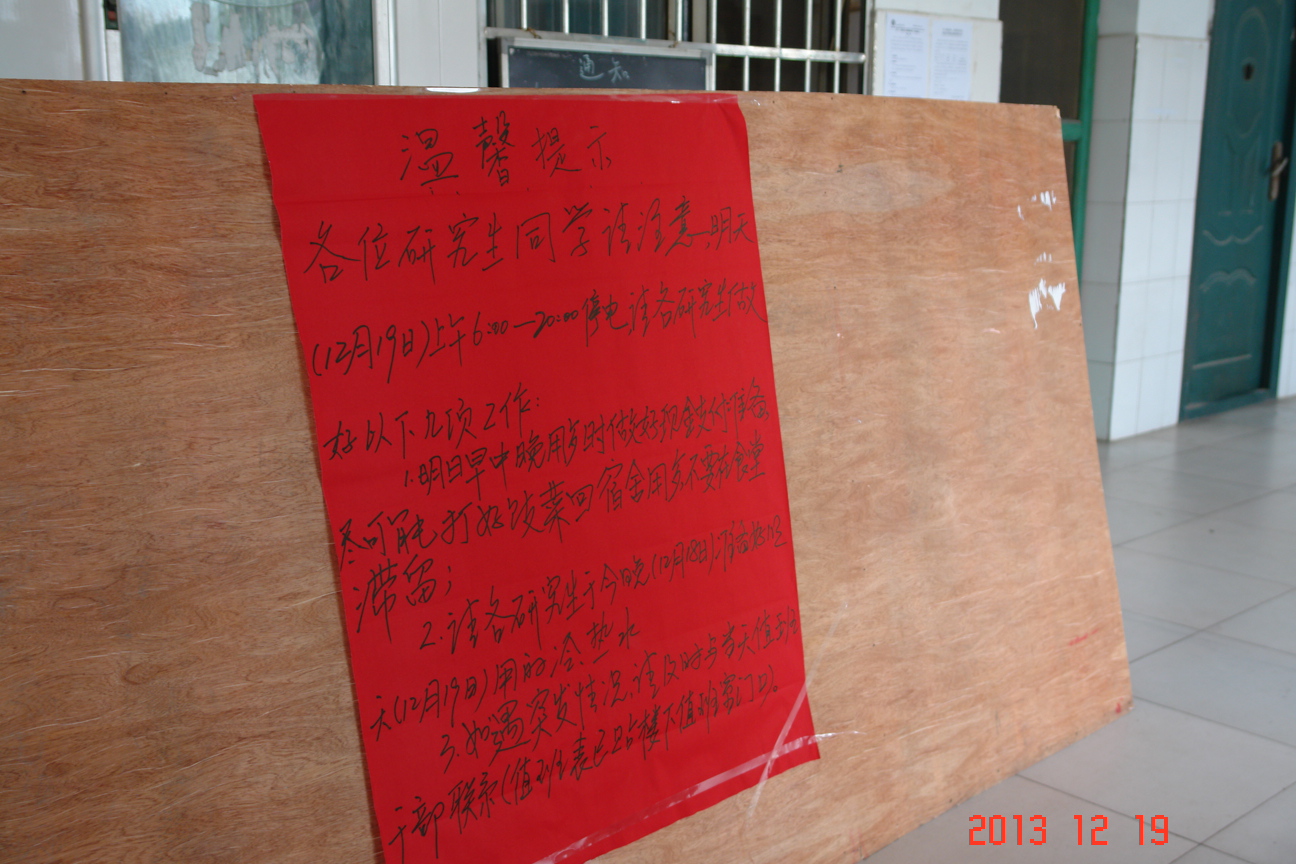 通知
温馨提示
各位研究生同学请注意,明天
(12月19日)上午6:00—20:00停电请各研究生做
好以下几项工作:
1.明日早中晚用歺时做好现金支付准备,
尽可能打好饭菜回宿舍用歺不要在食堂
滞留;
2.请各研究生于今晚(12月18日)储备好明
天(12月19日)用的冷.热水
3.如遇突发情况,请及时与当天值班
干部联系(值班表已贴楼下值班室门口)。
2013 12 19